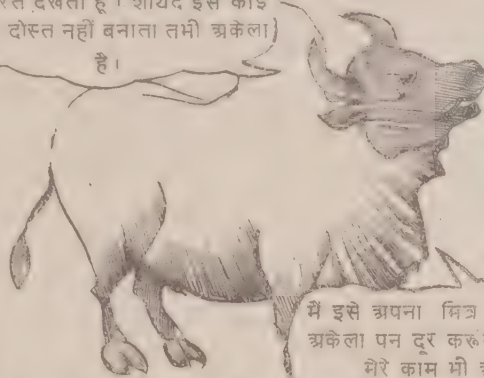 देखता हूँ । शायद इसे कोई
दोस्त नहीं बनाता तभी अकेला
है।
मैं इसे अपना मित्र
अकेला पन दूर
मेरे काम भी